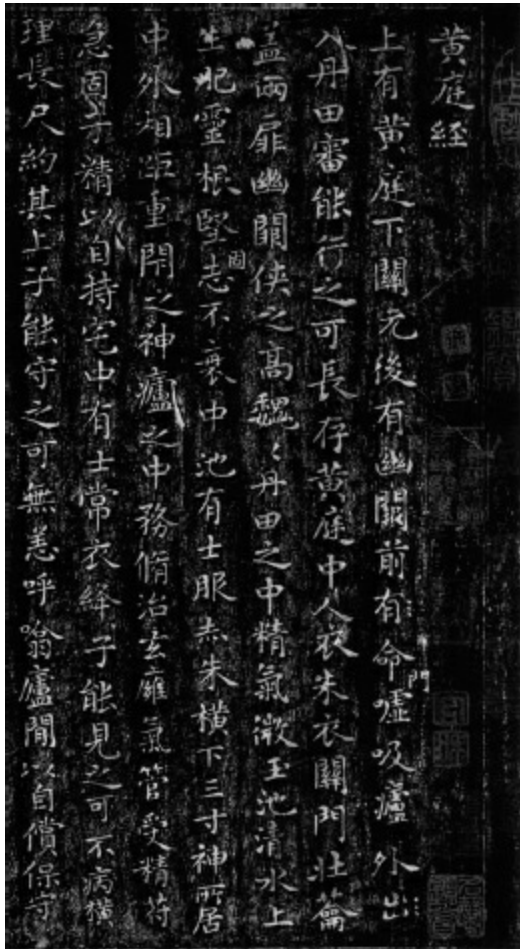 黄庭經
上有黄庭下關元後有幽闕前有命門噓吸廬外出
入丹田審能行之可長存黄庭中人衣朱衣關門壯蘥
蓋兩扉幽闕俠之高魏〻丹田之中精氣微玉池清水上
生肥靈根堅固志不衰中池有士服赤朱橫下三寸神所居
中外相距重閇之神廬之中務脩治玄廱氣管受精苻
急固子精以自持宅中有士常衣絳子能見之可不病橫
理長尺約其上子能守之可無恙呼噏廬閒以自償保守